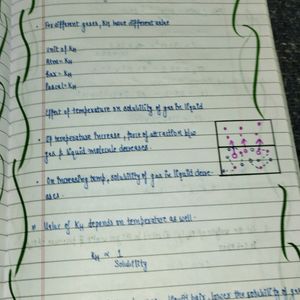 • For different gases, KH have different value
Unit of KH
Atm = KH
Bar = KH
Pascal = KH
Effect of temperature on solubility of gas in liquid
• If temperature increase, force of attraction b/w
gas & liquid molecule decreases.
• On increasing temp, solubility of gas in liquid decre-
ases.
* Value of KH depends on temperature as well.
KH ∝ 1
Solubility
lower the solubility of gas